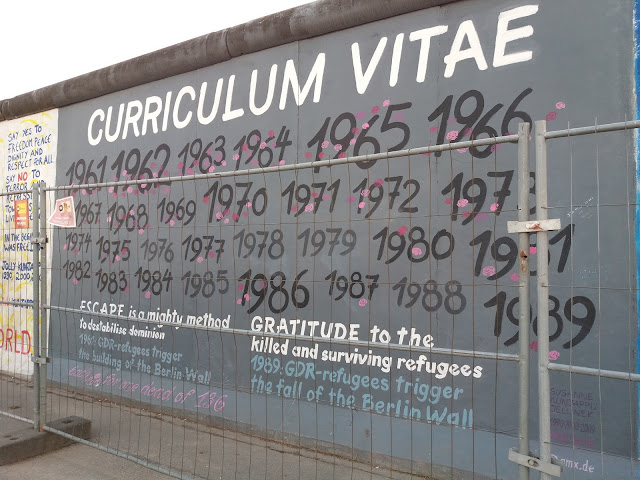 SAY YES TO
FREEDOM PEACE
DIGNITY AND
RESPECT FOR ALL
SAY NO TO
TERROR AND
CURRICULUM VITAE
1961 1962 1963 1964 1965 1966
1967 1968 1969 1970 1971 1972 1973
1974 1975 1976 1977 1978 1979 1980 1981
1982 1983 1984 1985 1986 1987 1988 1989
ESCAPE is a mighty method
to destabilise dominion
1961: GDR-refugees trigger
the building of the Berlin Wall
GRATITUDE to the
killed and surviving refugees
1989: GDR-refugees trigger
the fall of the Berlin Wall
WORLD.
gmx.de